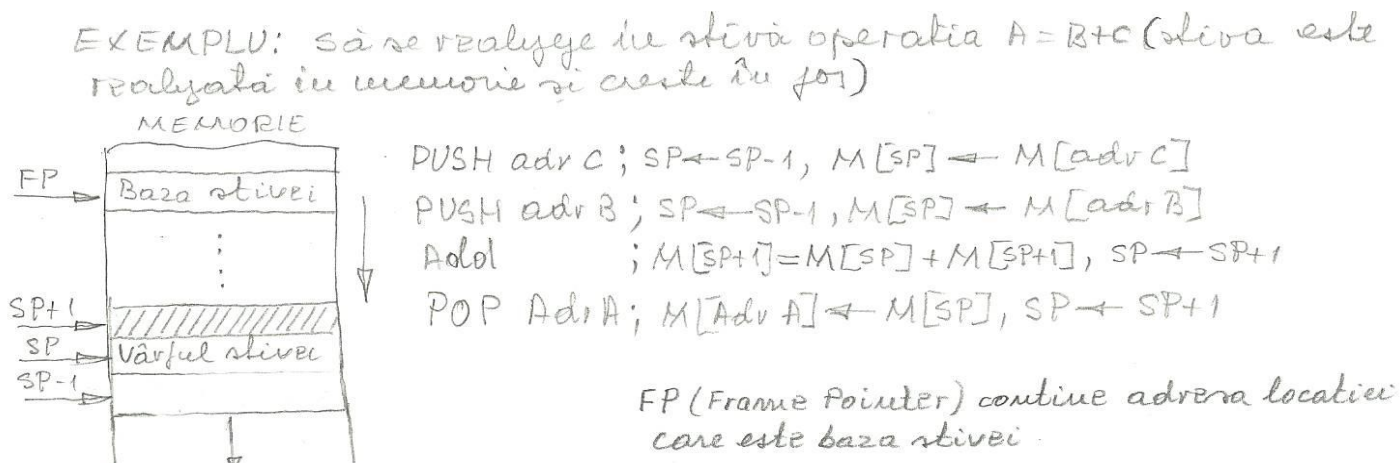 EXEMPLU: să se realizeze în stivă operatia A = B+C (stiva este
realizată in memorie si creste în jos)
MEMORIE
FP
Baza stivei
SP+1
SP
Vârful stivei
SP-1
PUSH adr C ; SP←SP-1, M[SP] ← M[adr C]
PUSH adr B ; SP←SP-1, M[SP] ← M[adr B]
Add ; M[SP+1]=M[SP]+M[SP+1], SP←SP+1
POP Adr A; M[Adr A] ← M[SP], SP← SP+1
FP (Frame Pointer) contine adresa locatiei
care este baza stivei.